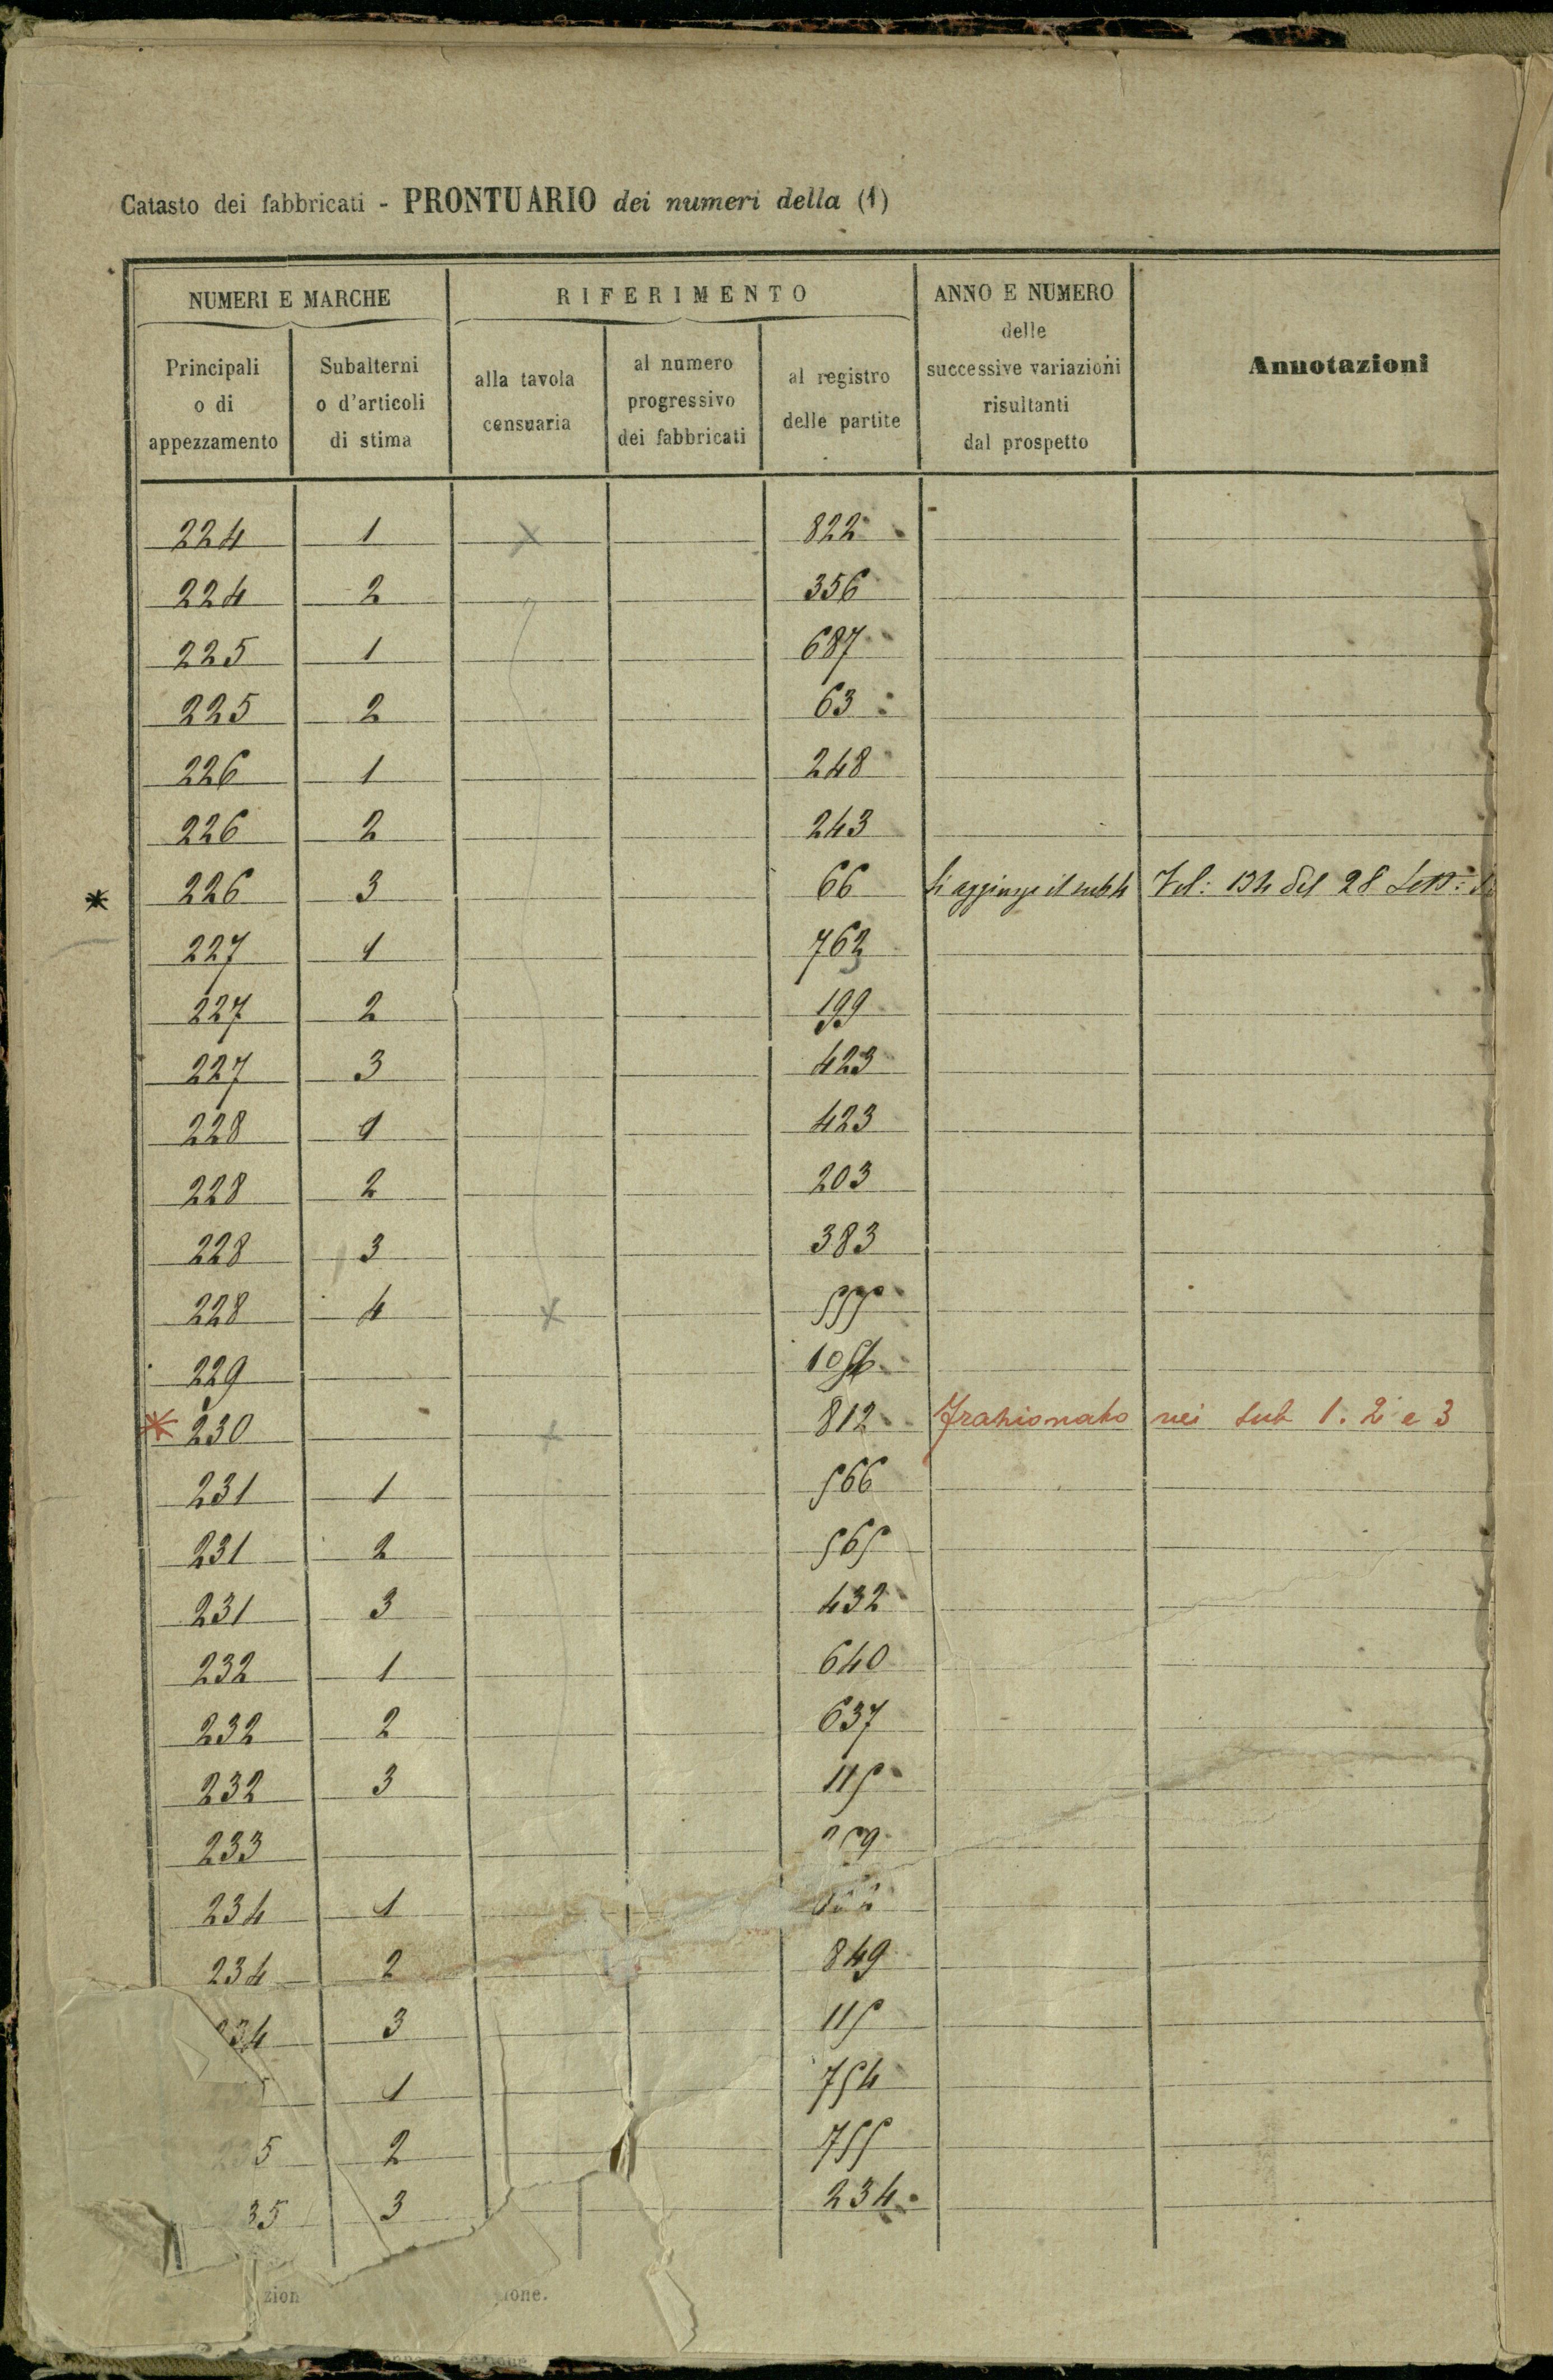 Catasto dei fabbricati - PRONTUARIO dei numeri della (1)
NUMERI E MARCHE RIFERIMENTO ANNO E NUMERO delle successive variazioni risultanti dal prospetto Annotazioni
Principali o di appezzamento Subalterni o d'articoli di stima alla tavola censuaria al numero progressivo dei fabbricati al registro delle partite
224 1 x 822
224 2 356
225 1 687
225 2 63
226 1 248
226 2 243
* 226 3 66 Si aggiunge il sub 4 Vol: 134 del 28 Sett:
227 1 762
227 2 199
227 3 423
228 1 423
228 2 203
228 3 383
228 4 x 555
229
* 230 x 812 Frazionato nei sub 1. 2 e 3
231 1 566
231 2 565
231 3 432
232 1 640
232 2 637
232 3 115
233
234 1
234 2 849
234 3 115
5 1 754
235 2 755
35 3 234
zion ione.